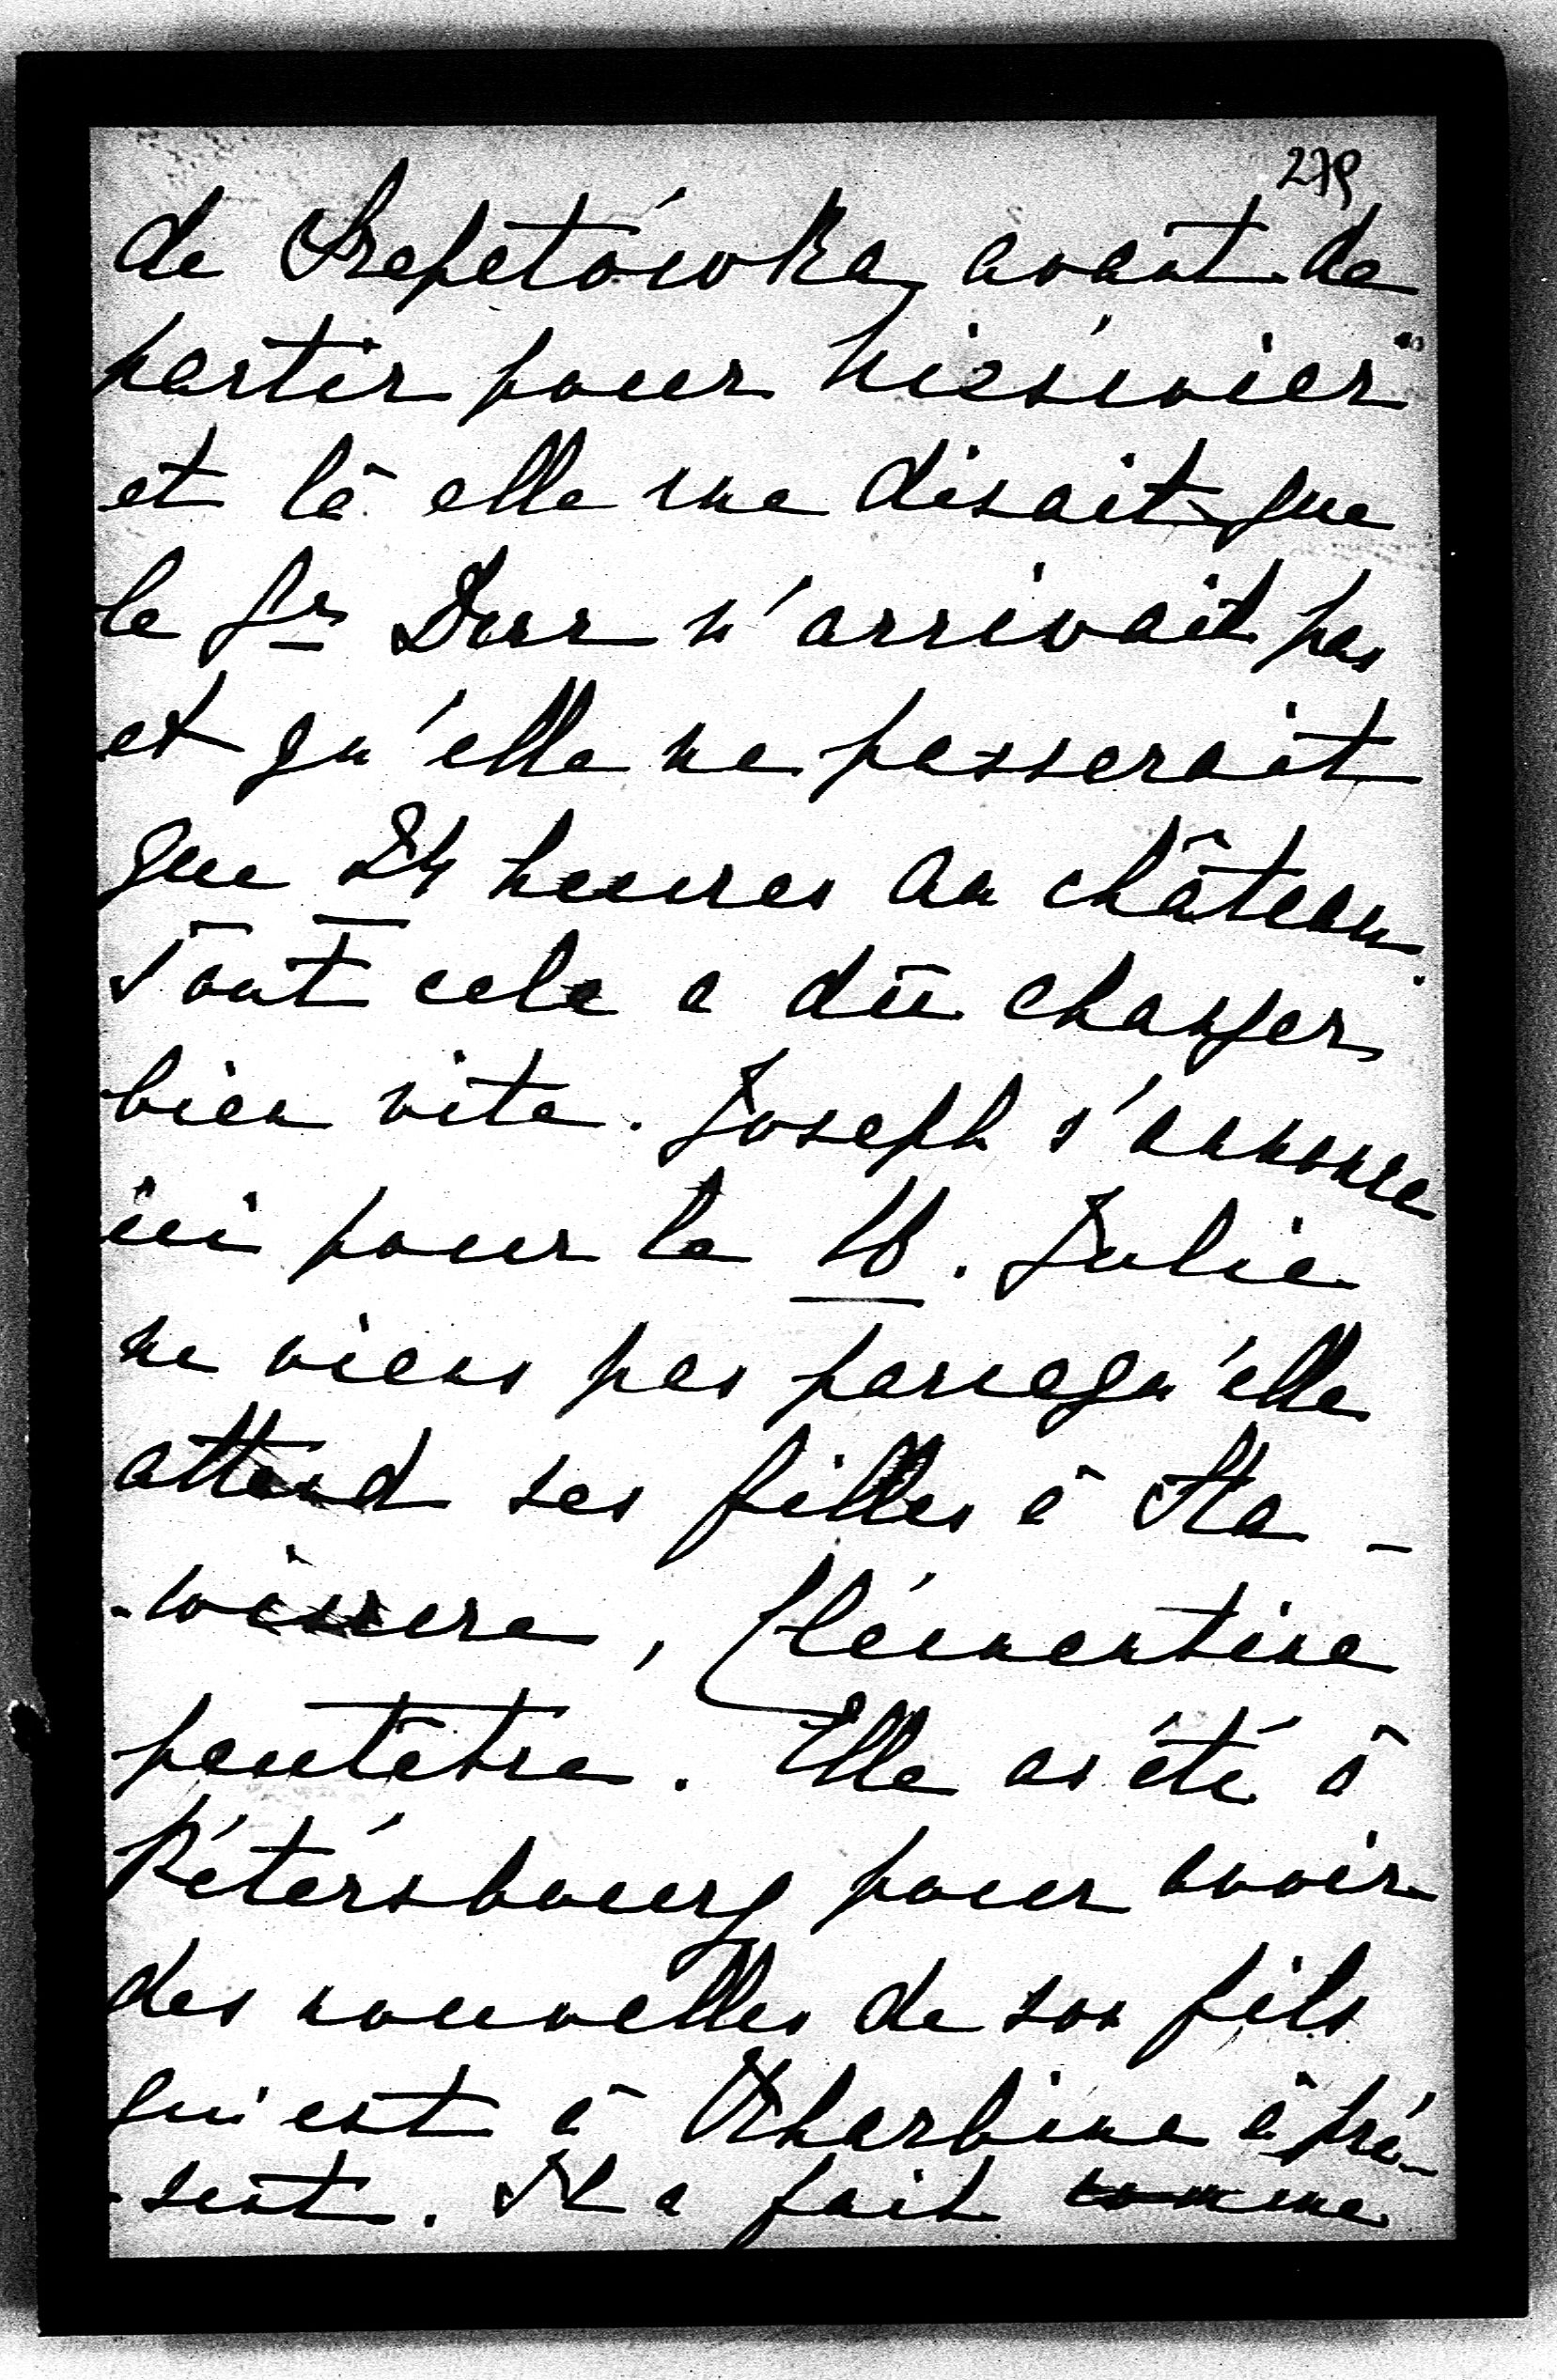 279
de Szepetówka avant de
partir pour Nieświer
et là elle me disait que
le Gr Durr n'arrivait pas
et qu'elle ne passerait
que 24 heures au château.
Tout cela a dû changer
bien vite. Joseph s'annonce
ici pour le 18. Julie
ne viens pas parcequ'elle
attend ses filles à Sta-
, Clémentine
peutêtre. Elle as été à
Pétérsbourg pour avoir
des nouvelles de son fils
qui est à Kharbine à pré-
-sent. Il a fait comme